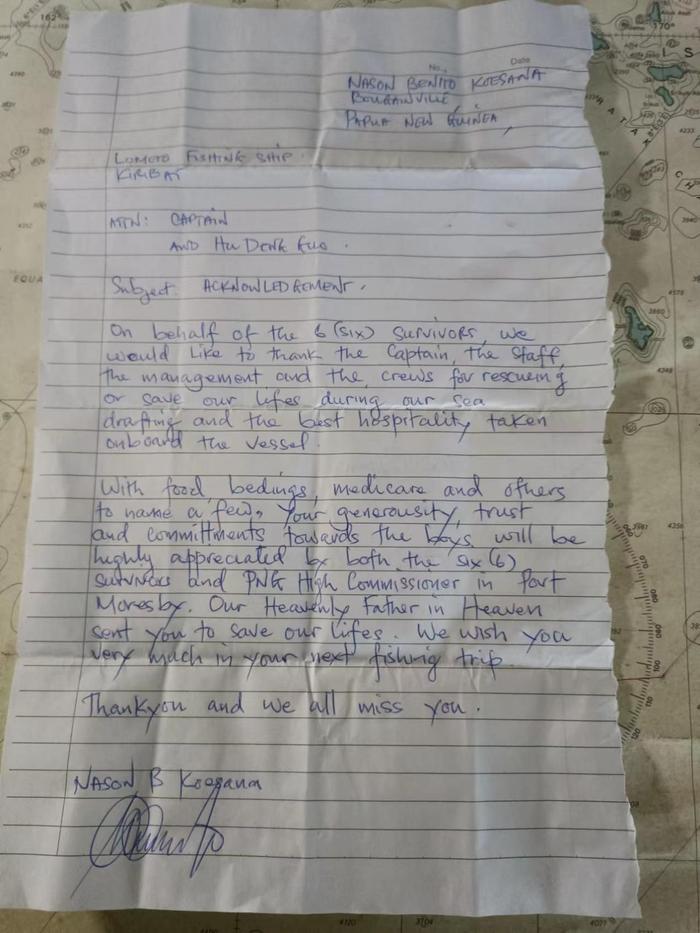 162°
170°
No.,
Date
NASON BENITO KOESANA
BOUGAINVILLE,
PAPUA NEW GUINEA,
LOMOTO FISHING SHIP.
KIRIBAT
ATTN: CAPTAIN
AND HU DENK FUO.
Subject: ACKNOWLEDGEMENT.
On behalf of the 6 (six) survivors, we
would like to thank the Captain, the staff,
the management and the crews for rescueing
or save our lifes during our sea
drafting and the best hospitality taken
onboard the vessel.
With food, bedings, medicare and others
to name a few, Your generousity, trust
and committments towards the boys will be
highly appreciated by both the six (6)
survivors and PNG High Commissioner in Port
Moresby. Our Heavenly Father in Heaven
sent you to save our lifes. We wish you
very much in your next fishing trip.
Thankyou and we all miss you.
NASON B Koesana
EQUA
4578
3860
4348
4120
3704
4071